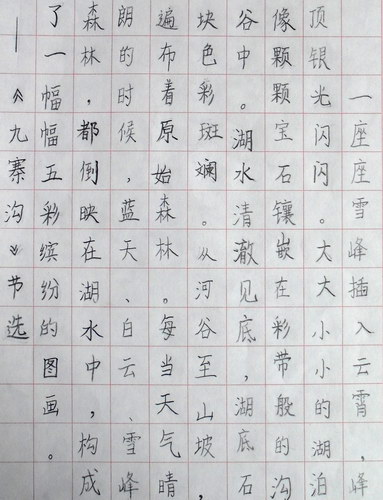 一座座雪峰插入云霄，峰
顶银光闪闪。大大小小的湖泊
像颗颗宝石镶嵌在彩带般的沟
谷中。湖水清澈见底，湖底石
块色彩斑斓。从河谷至山坡，
遍布着原始森林。每当天气晴
朗的时候，蓝天、白云、雪峰
森林，都倒映在湖水中，构成
了一幅幅五彩缤纷的图画。
——《九寨沟》节选